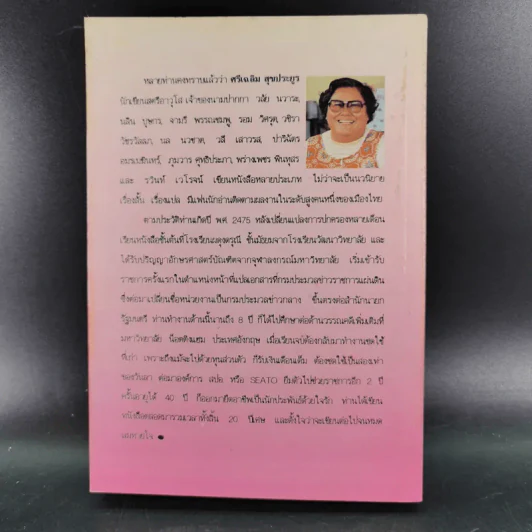 หลายท่านคงทราบแล้วว่า ศรีเฉลิม สุขประยูร
นักเขียนสตรีอาวุโส เจ้าของนามปากกา วลัย นวาระ,
นลิน บุษกร, จามรี พรรณชมพู, รอม วิศรุต, วชิรา
วัชรวัลลภ, นล นวชาต, วลี เสาวรส, ปาริฉัตร
อมรเบขินทร์, ภุมวาร คุหธิประภา, พร่างเพชร พันทุสร
และ รวินท์ เวโรจน์ เขียนหนังสือหลายประเภท ไม่ว่าจะเป็นนวนิยาย
เรื่องสั้น เรื่องแปล มีแฟนนักอ่านติดตามผลงานในระดับสูงคนหนึ่งของเมืองไทย
ตามประวัติท่านเกิดปี พ.ศ. 2475 หลังเปลี่ยนแปลงการปกครองหลายเดือน
เรียนหนังสือชั้นต้นที่โรงเรียนผดุงดรุณี ชั้นมัธยมจากโรงเรียนวัฒนาวิทยาลัย และ
ได้รับปริญญาอักษรศาสตร์บัณฑิตจากจุฬาลงกรณ์มหาวิทยาลัย เริ่มเข้ารับ
ราชการครั้งแรกในตำแหน่งหน้าที่แปลเอกสารที่กรมประมวลข่าวราชการแผ่นดิน
ซึ่งต่อมาเปลี่ยนชื่อหน่วยงานเป็นกรมประมวลข่าวกลาง ขึ้นตรงต่อสำนักนายก
รัฐมนตรี ท่านทำงานด้านนี้นานถึง 8 ปี ก็ได้ไปศึกษาต่อด้านวรรณคดีเพิ่มเติมที่
มหาวิทยาลัย น็อตติงแฮม ประเทศอังกฤษ เมื่อเรียนจบก็ต้องกลับมาทำงานชดใช้
ที่เก่า เพราะถึงแม้จะไปด้วยทุนส่วนตัว ก็รับเงินเดือนเต็ม ต้องชดใช้เป็นสองเท่า
ของวันลา ต่อมาองค์การ สปอ. หรือ SEATO ยืมตัวไปช่วยราชการอีก 2 ปี
ครั้นอายุได้ 40 ปี ก็ออกมายึดอาชีพเป็นนักประพันธ์ด้วยใจรัก ท่านได้เขียน
หนังสือตลอดมารวมเวลาทั้งสิ้น 20 ปีเศษ และตั้งใจว่าจะเขียนต่อไปจนหมด
ลมหายใจ